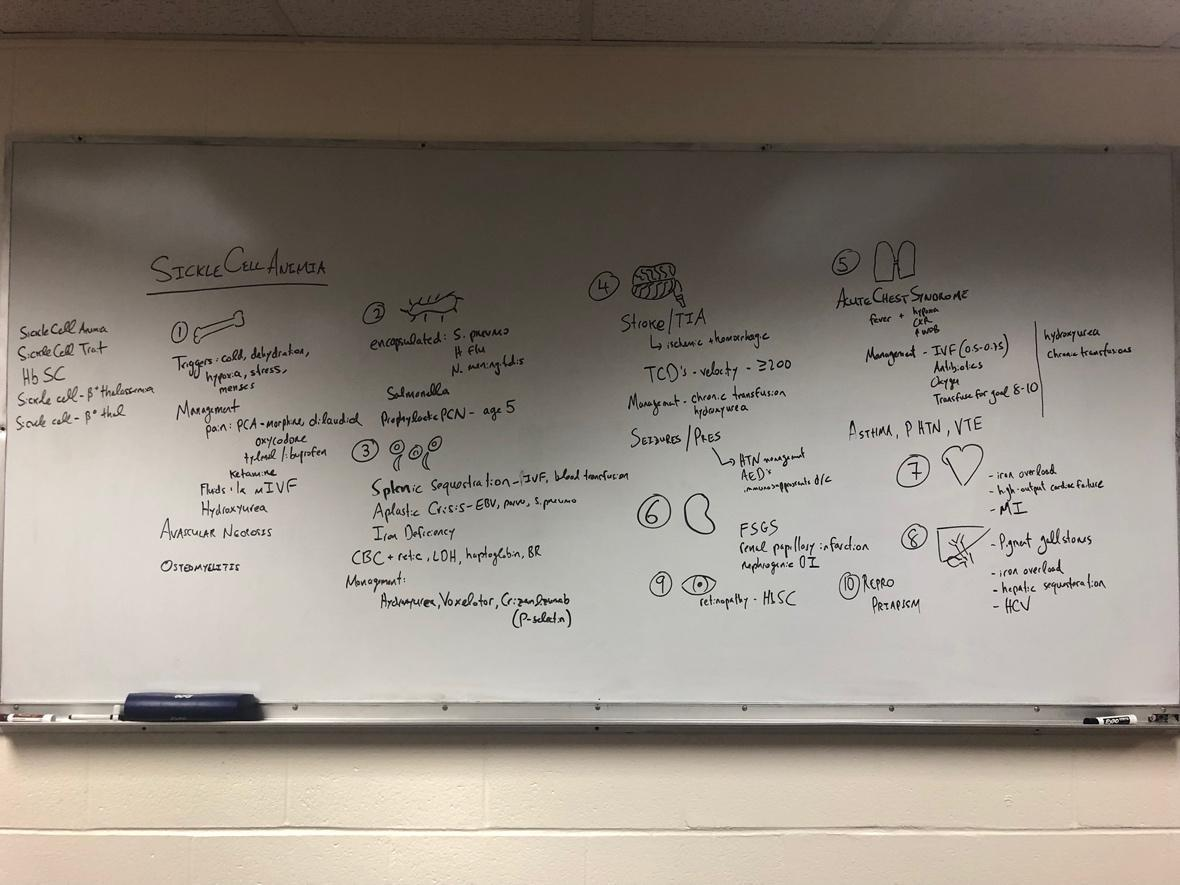 SICKLE CELL ANIMIA
Sickle Cell Anemia
Sickle Cell Trait
Hb SC
Sickle cell - β⁺ thalassemia
Sickle cell - β° thal
①
Triggers: cold, dehydration,
hypoxia, stress,
menses
Management
pain: PCA - morphine, dilaudid
oxycodone
tylenol / ibuprofen
ketamine
Fluids: 1x mIVF
Hydroxyurea
AVASCULAR NECROSIS
OSTEOMYELITIS
②
encapsulated: S. pneumo
H flu
N. meningitidis
Salmonella
Prophylactic PCN - age 5
③
Splenic Sequestration - IVF, blood transfusion
Aplastic Crisis - EBV, parvo, s. pneumo
Iron Deficiency
CBC + retic, LDH, haptoglobin, BR
Management:
Hydroxyurea, Voxelotor, Crizanlizumab
(P-selectin)
④
Stroke/TIA
↳ ischemic + hemorrhagic
TCD's - velocity - ≥200
Management - chronic transfusion
hydroxyurea
SEIZURES / PRES
↳ HTN management
AED's
immunosuppressants d/c
⑤
ACUTE CHEST SYNDROME
fever + hypoxia
CXR
↑ WOB
Management - IVF (0.5-0.75)
Antibiotics
Oxygen
Transfuse for goal 8-10
hydroxyurea
chronic transfusions
ASTHMA, PHTN, VTE
⑥
FSGS
renal papillary infarction
nephrogenic DI
⑦
- iron overload
- high-output cardiac failure
- MI
⑧
- Pigment gallstones
- iron overload
- hepatic sequesteration
- HCV
⑨
retinopathy - HbSC
⑩ REPRO
PRIAPISM
EXPO